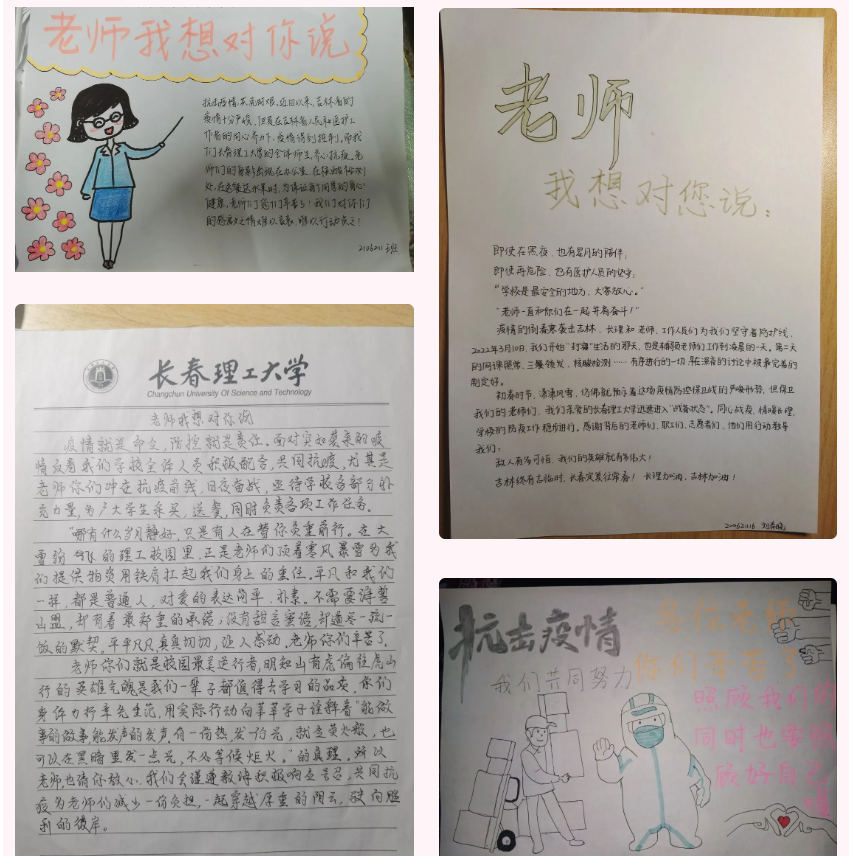 老师我想对你说
抗击疫情,共克时艰。近日以来,吉林省的
疫情十分严峻,但是在吉林省人民和医护工
作者的同心齐力下,疫情得到控制,而我
们长春理工大学的全体师生,齐心抗疫,老
健康,老师们,您们辛苦了!我们对你们
的感激之情难以言表,唯以行动负之!
长春理工大学
Changchun University Of Science and Technology
老师我想对你说
疫情就是命令,防控就是责任。面对突如袭来的疫
情反着我们学校全体人员积极配合,共同抗疫,尤其是
老师你们冲在抗疫前线,日夜奋战,亟待学校各部分补
充力量,为广大学生采买,送餐,同时负责各项工作任务。
“哪有什么岁月静好,只是有人在替你负重前行。在大
雪纷飞的理工校园里,正是老师们顶着寒风暴雪为我
们提供物资用铁肩扛起我们身上的重任。平凡和我们
一样,都是普通人,对爱的表达简单,朴素。不需要海誓
山盟,却有着最郑重的承诺;没有甜言蜜语,却遵冬一疏一
饭的默契。平平凡凡,真真切切,让人感动,老师你们辛苦了。
老师你们就是校园最美逆行者,明知山有虎偏往虎山
行的英雄气魄是我们一辈子都值得去学习的品质,你们
身体力行率先生范,用实际行动向莘莘学子诠释着“能做
事的做事能发声的发声,有一份热发一份光,就是萤火般,也
可以在黑暗里发一点光,不必等候炬火。”的真理,所以
老师也请你放心,我们会谨遵教诲积极响应号召,共同抗
疫为老师们减少一份负担,一起穿越厚重的阴云,驶向胜
利的彼岸。
老师
我想对您说:
即使在黑夜,也有星月的陪伴;
即使再危险,也有医护人员的坚守;
“学校是最安全的地方,大家放心。”
“老师一直和你们在一起并肩奋斗!”
疫情的倒春寒袭击吉林,长理和老师、工作人员们为我们坚守着防护线,
2022年3月10日,我们开始“封寝”生活的那天,也是辅导员老师们工作到凌晨的一天。第二天
的网课照常,三餐领发,核酸检测……有序进行的一切,早在深夜的讨论中被最完善的
制定好。
初春时节,漫漫风雪,仿佛能预示着这场疫情防控保卫战的严峻形势,但保卫
我们的老师们,我们亲爱的长春理工大学迅速进入“战备状态”。同心战疫,情暖长理,
学校的防疫工作稳步进行,感谢背后的老师们、职工们、志愿者们,他们用行动教导
我们:
敌人有多可怕,我们的英雄就有多伟大!
吉林终有吉临时,长春定装往常春!长理加油,吉林加油!
抗击疫情
我们共同努力
各位老师
你们辛苦了
照顾我们的
同时也要照
顾好自己